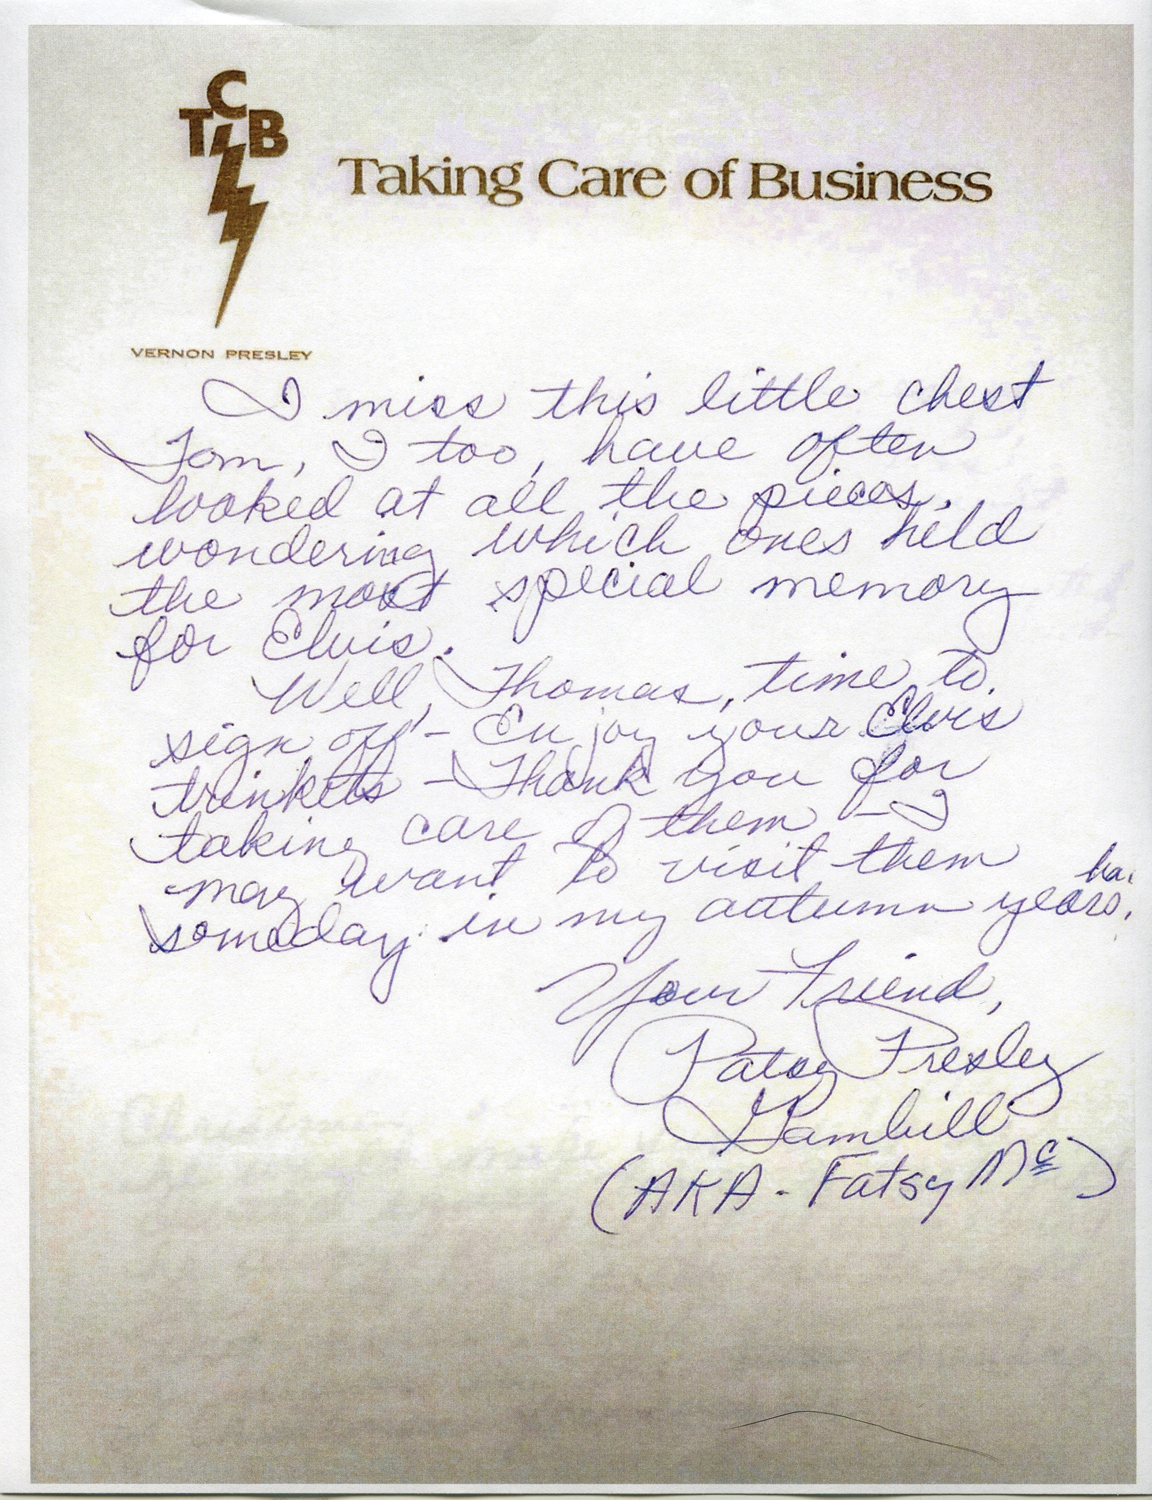 TCB
Taking Care of Business
VERNON PRESLEY
I miss this little chest
Tom, I too, have often
looked at all the pieces,
wondering which ones held
the most special memory
for Elvis.
Well, Thomas, time to
sign off - Enjoy your Elvis
trinkets - Thank you for
taking care of them - I
may want to visit them
ha.
someday in my autumn years.
Your Friend,
Patsy Presley
Gambill
(AKA - Fatsy Mc)